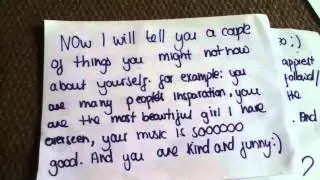 NOW I will tell you a couple
of things you might not now
about yourself. for example: you
are many people's insparation, you
are the most beautiful girl I have
everseen, your music is sooooo
good. And you are kind and funny:)
so :)
appiest
followed/
the
. And
?